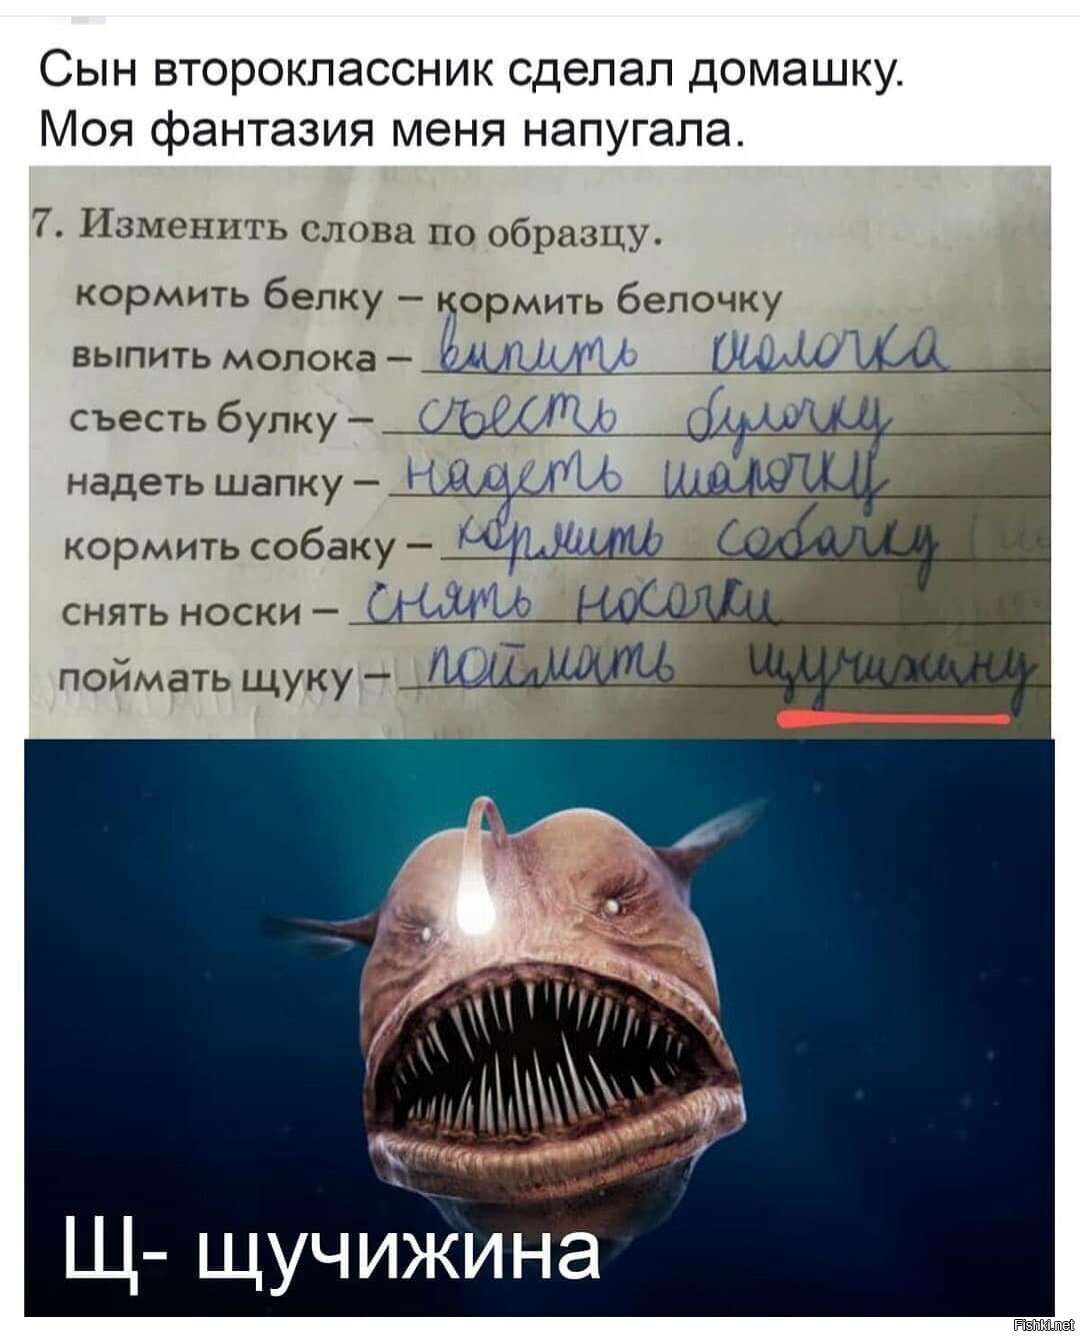 Сын второклассник сделал домашку.
Моя фантазия меня напугала.
7. Изменить слова по образцу.
кормить белку – кормить белочку
выпить молока – выпить молочка
съесть булку – съесть булочку
надеть шапку – надеть шапочку
кормить собаку – кормить собачку
снять носки – снять носочки
поймать щуку – поймать щучижину
Щ- щучижина
Fishki.net